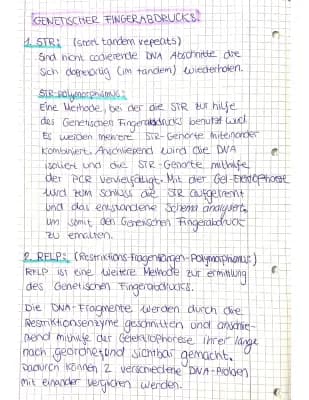 GENETISCHER FINGERABDRUCKS:
1. STR: (short tandem repeats)
Sind nicht codierende DNA Abschnitte die
sich dapelartig (im tandem) wiederholen.
STR-polymorphismus:
Eine Methode, bei der die STR zur hilfe
des Genetischen Fingerabdrucks benutzt wird
Es werden mehrere STR-Genorte miteinander
kombiniert. Anschliepend wird die DNA
isoliert und die STR-Genorte mithilfe
der PCR vervielfältigt. Mit der Gel-Elektrophorese
wird zum Schluss die STR aufgetrennt
und das entstandene Schema analysiert,
um somit den Genetischen Fingerabdruck
zu erhalten.
2. RFLP: (Restriktions-Fragentlängen-Polymorphismus)
RFLP ist eine weitere Methode zur ermittlung
des Genetischen Fingerabdrucks.
Die DNA-Fragmente werden durch die
Restriktionsenzyme geschnitten und anschlie-
pend mithilfe der Gelektrophorese ihrer länge
nach geordnet und sichtbar gemacht.
Dadurch können 2 verschiedene DNA-Proben
mit einander verglichen werden.